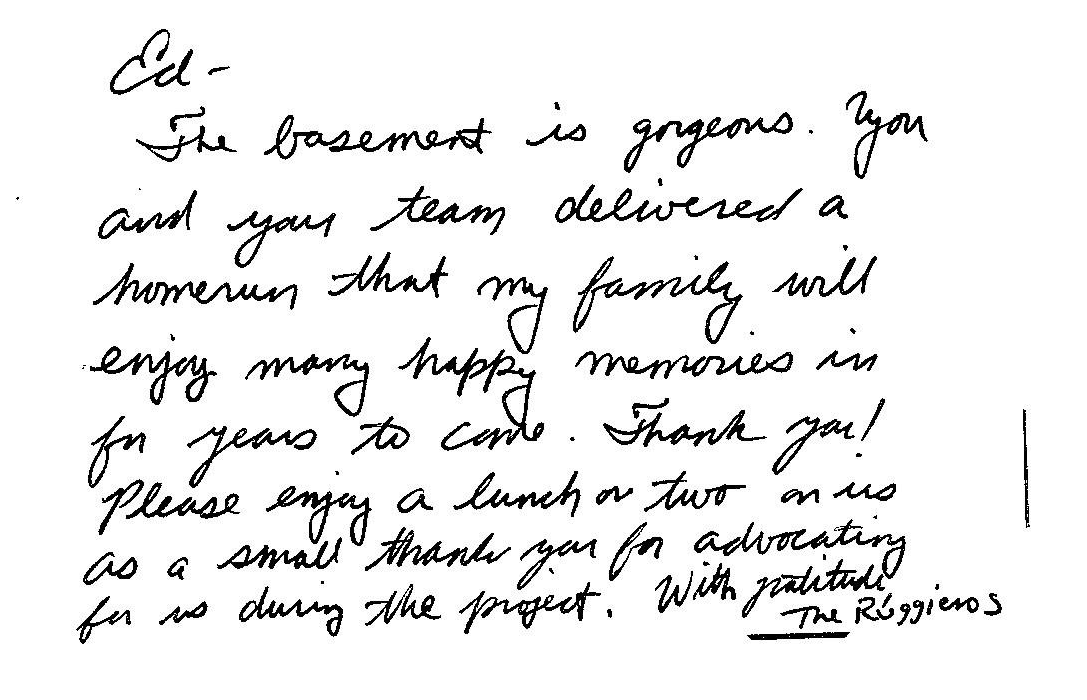 Ed -
The basement is gorgeous. You
and your team delivered a
homerun that my family will
enjoy many happy memories in
for years to come. Thank you!
Please enjoy a lunch or two on us
as a small thank you for advocating
for us during the project. With gratitude
The Ruggieros